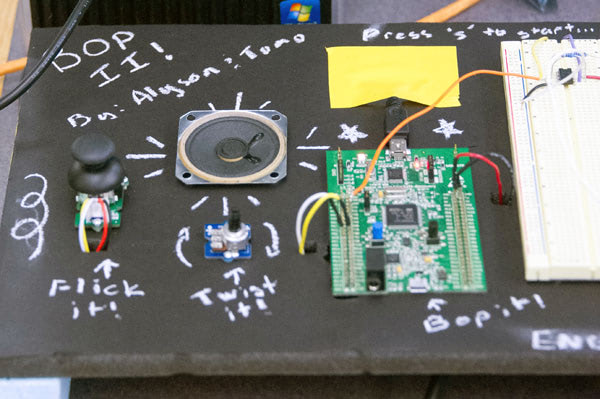 BOP
II!
By: Alyson & Tomo
Press 's' to start...
Flick
it!
Twist
it!
Bop it!
ENG